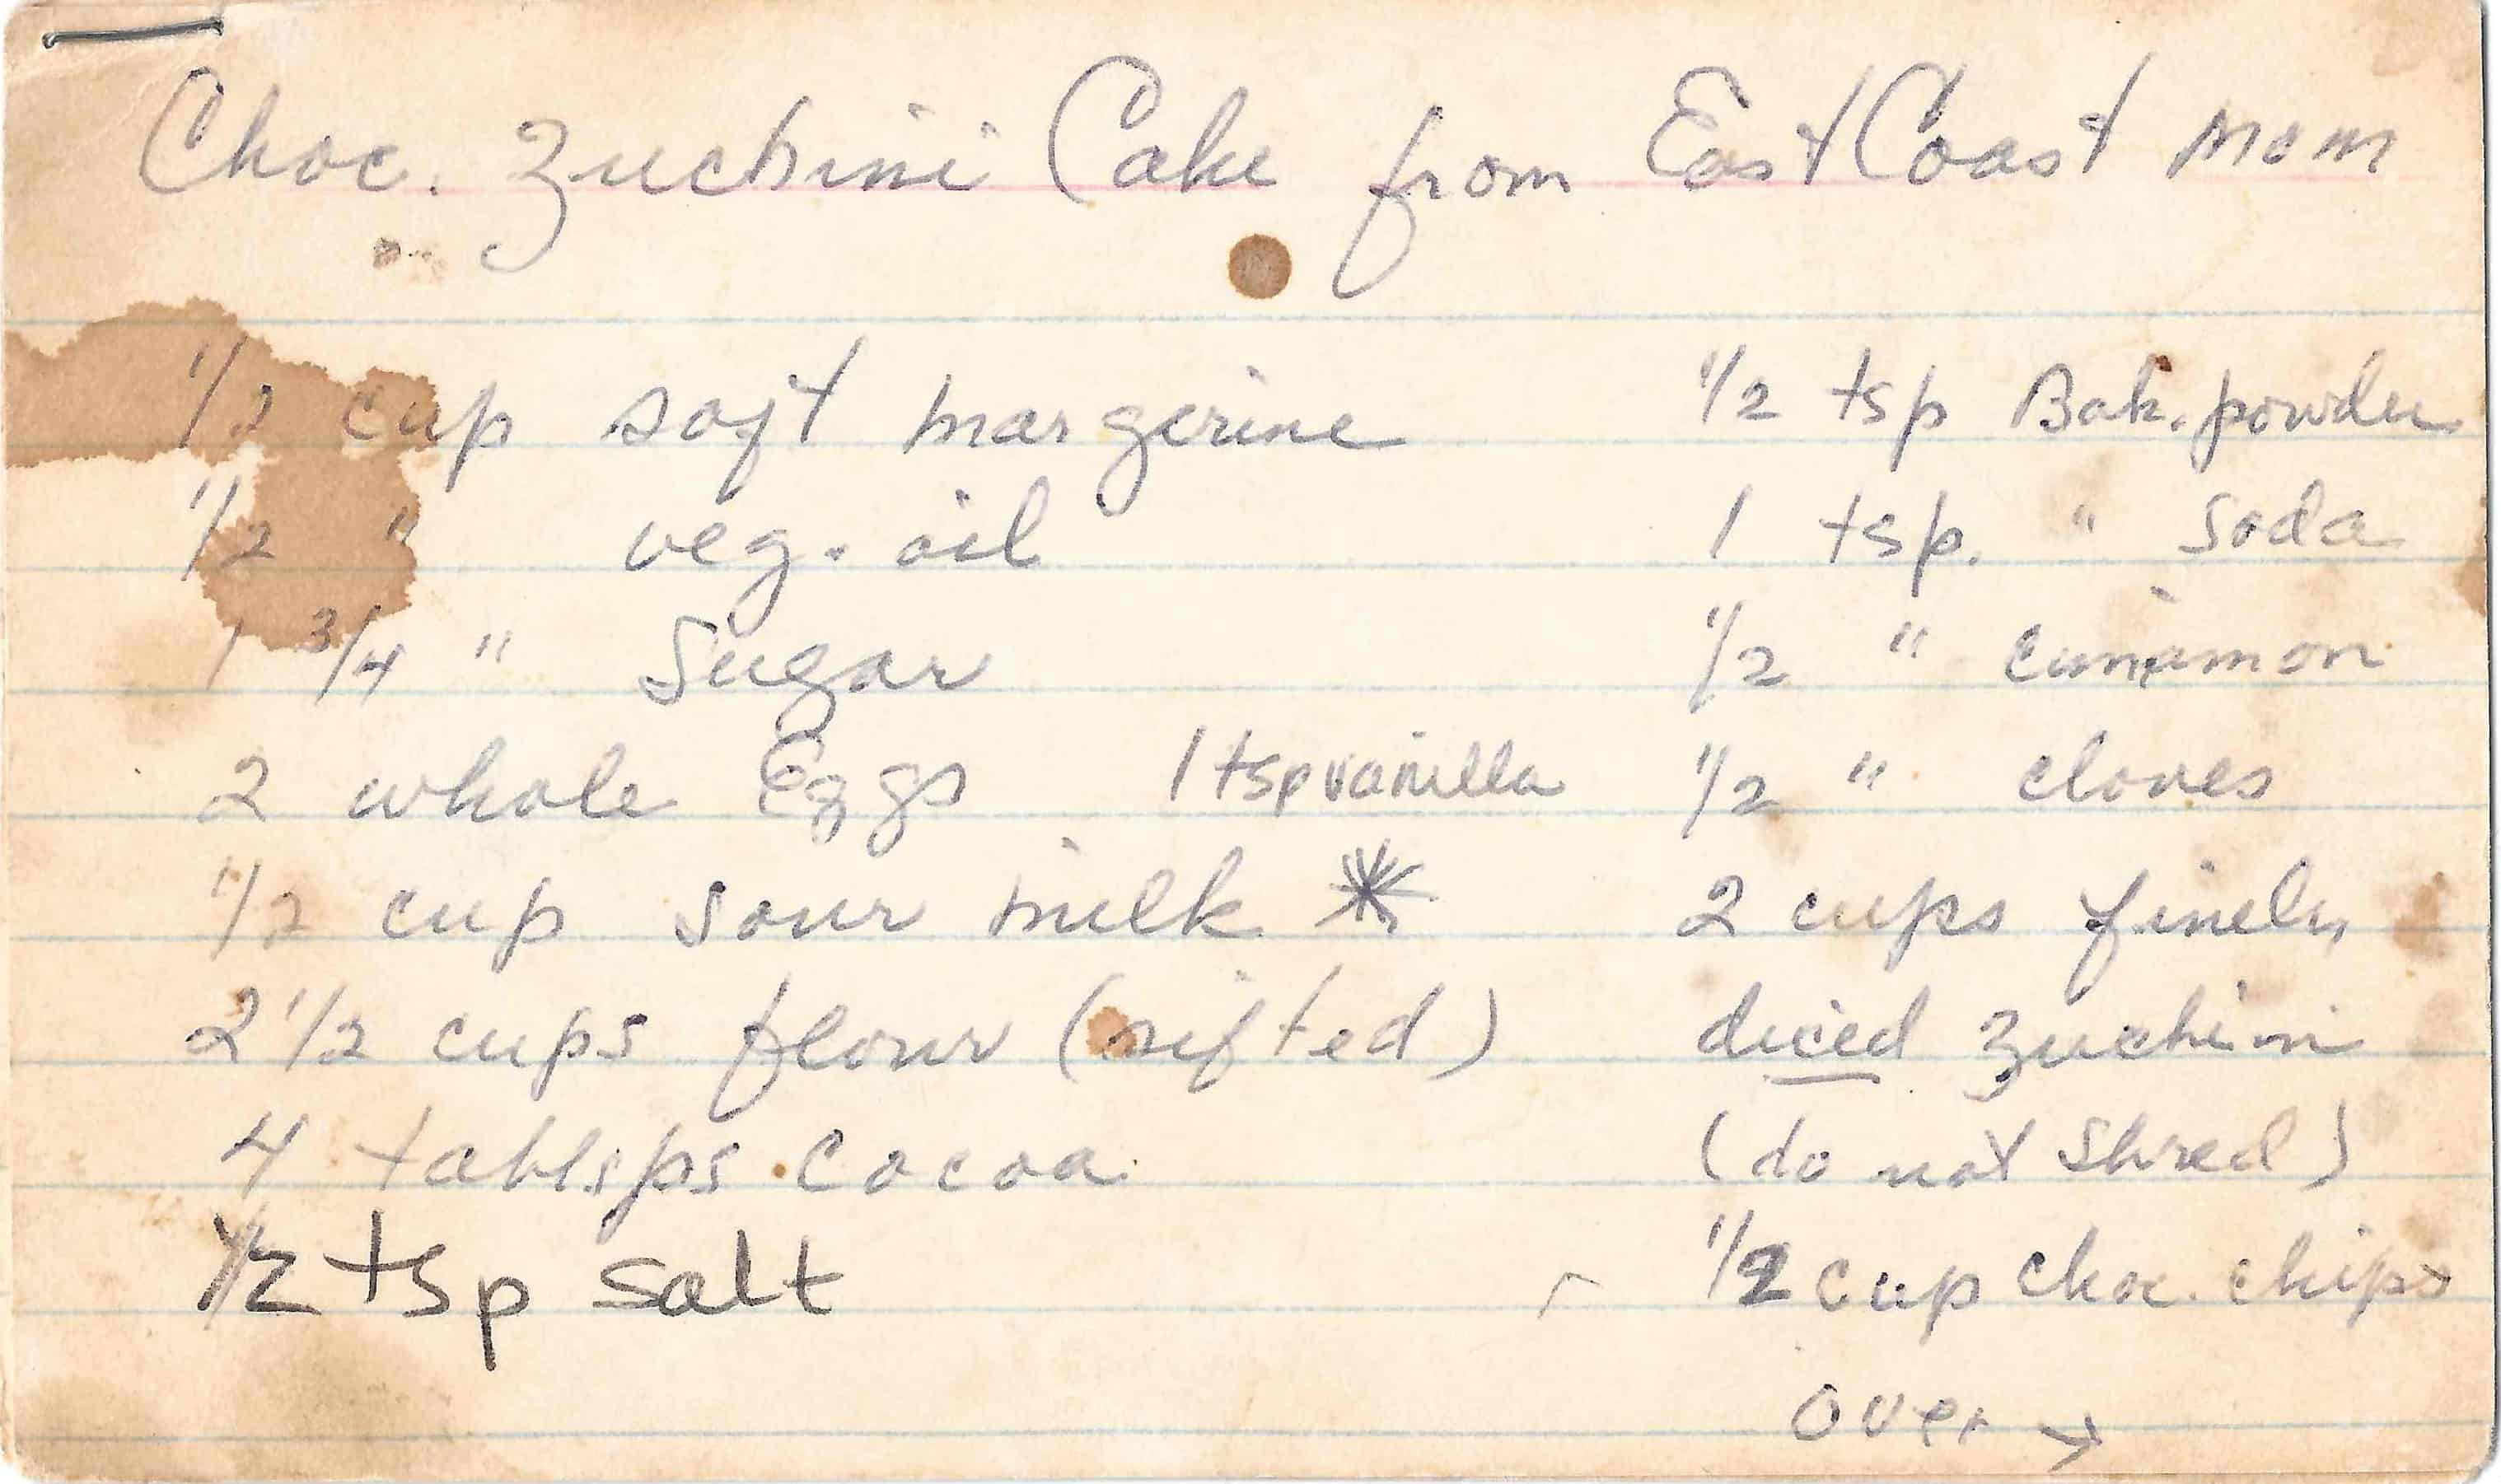 Choc. Zuchini Cake from East Coast Mom
1/2 cup soft margerine
1/2 " veg. oil
1 3/4 " Sugar
2 whole Eggs 1 tsp vanilla
1/2 cup sour milk *
2 1/2 cups flour (sifted)
4 tablsps cocoa
1/2 tsp salt
1/2 tsp Bak. powder
1 tsp. " Soda
1/2 " cinnamon
1/2 " cloves
2 cups finely
diced zuchini
(do not shred)
1/2 cup choc. chips
over →